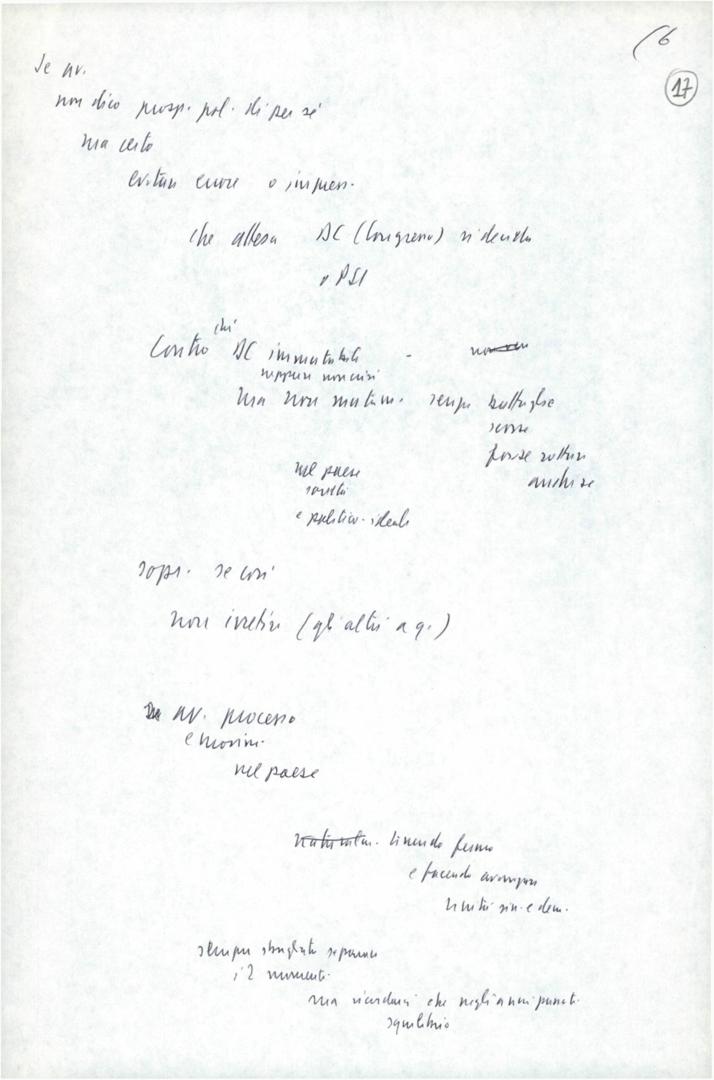 (6
17
Se av.
non dico prosp. pol. di per sé
ma certo
evitare errore o impress.
che attesa DC (Congresso) si decida
o PSI
chi
Contro DC immutabile -
neppure noi così
ma non mutam. senza battaglie
scosse
forse rotture
anche se
nel paese
sociali
e politico-ideali
sopr. se così
non irretire (gli altri a q.)
av. processo
e movim.
nel paese
naturalm. tenendo fermo
e facendo avanzare
unità sin. e dem.
sempre sbagliato separare
i 2 momenti
ma ricordarci che negli anni passati
squilibrio